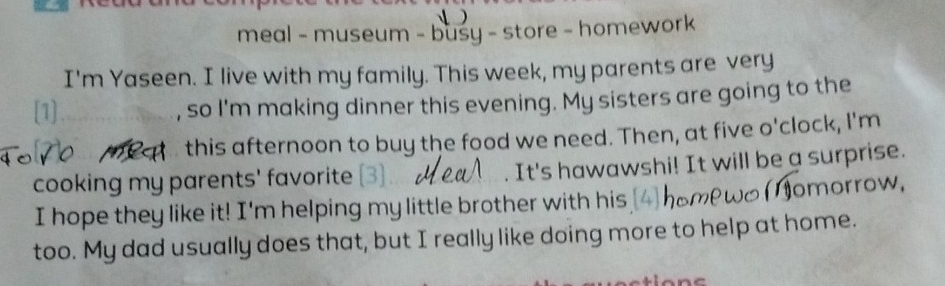 2 Read and complete the text with words
meal - museum - busy - store - homework
I'm Yaseen. I live with my family. This week, my parents are very
[1] ............, so I'm making dinner this evening. My sisters are going to the
this afternoon to buy the food we need. Then, at five o'clock, I'm
cooking my parents' favorite [3] Meal . It's hawawshi! It will be a surprise.
I hope they like it! I'm helping my little brother with his [4] homework tomorrow,
too. My dad usually does that, but I really like doing more to help at home.
questions